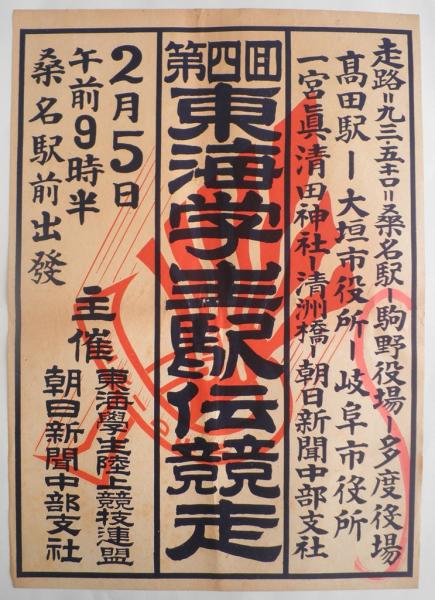 走路=九三・五キロ=桑名駅ー駒野役場ー多度役場
高田駅ー大垣市役所ー岐阜市役所
一宮眞清田神社ー清洲橋ー朝日新聞中部支社
第四回
東海学生駅伝競走
2月5日
午前9時半
桑名駅前出發
主催
東海學生陸上競技連盟
朝日新聞中部支社